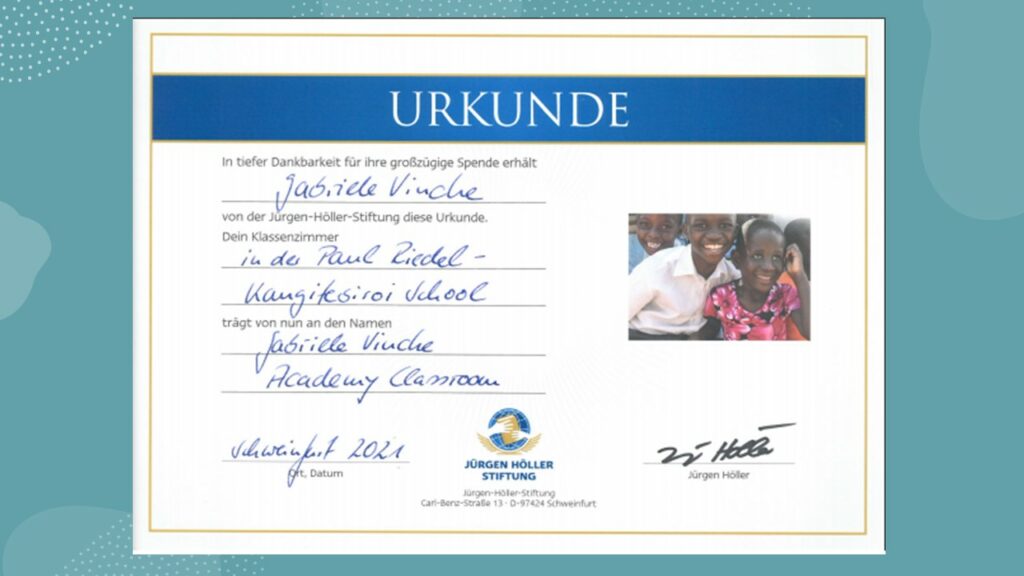 URKUNDE
In tiefer Dankbarkeit für ihre großzügige Spende erhält
Gabriele Vincke
von der Jürgen-Höller-Stiftung diese Urkunde.
Dein Klassenzimmer
in der Paul Riedel -
Kangitesiroi School
trägt von nun an den Namen
Gabriele Vincke
Academy Classroom
Schweinfurt 2021
Ort, Datum
JÜRGEN HÖLLER
STIFTUNG
Jürgen-Höller-Stiftung
Carl-Benz-Straße 13 · D-97424 Schweinfurt
Jürgen Höller